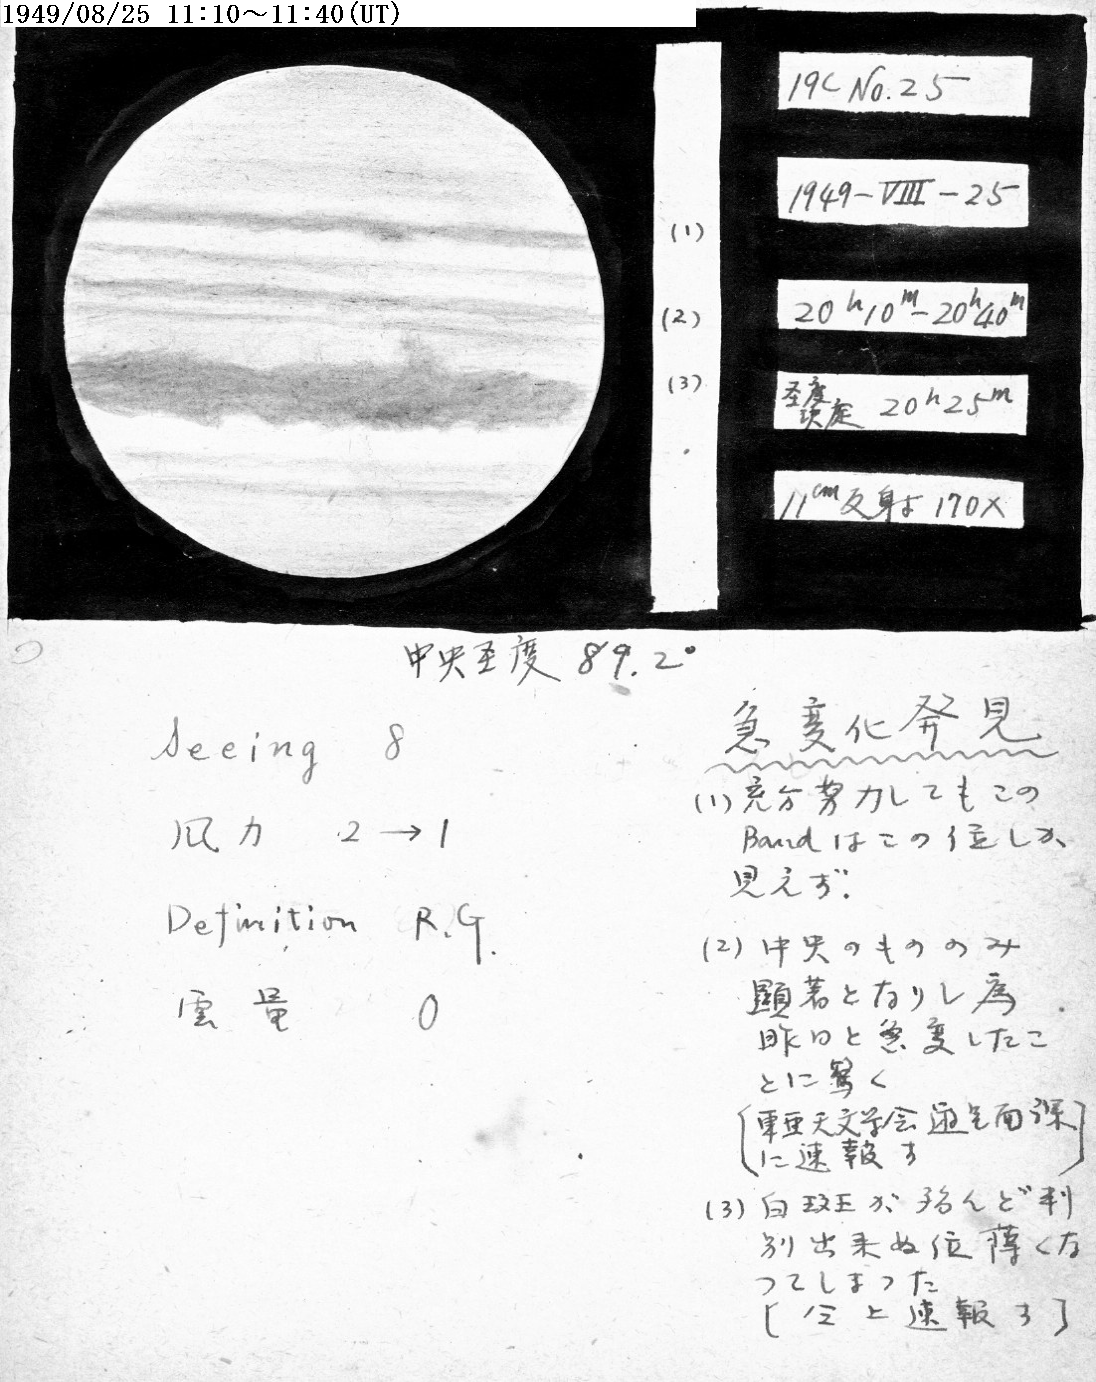 1949/08/25 11:10～11:40(UT)
19c No.25
1949-VIII-25
20h10m-20h40m
圣度決定 20h25m
11cm反射 170X
(1)
(2)
(3)
中央圣度 89.2°
Seeing 8
風力 2→1
Definition R.G.
雲量 0
急変化発見
(1) 充分努力してもこの
Bandはこの位しか
見えず.
(2) 中央のもののみ
顕著となりし為
昨日と急変したこ
とに驚く
[東亜天文学会遊星面課
に速報す]
(3) 白斑が殆んど判
別出来ぬ位薄くな
ってしまった
[仝上速報す]